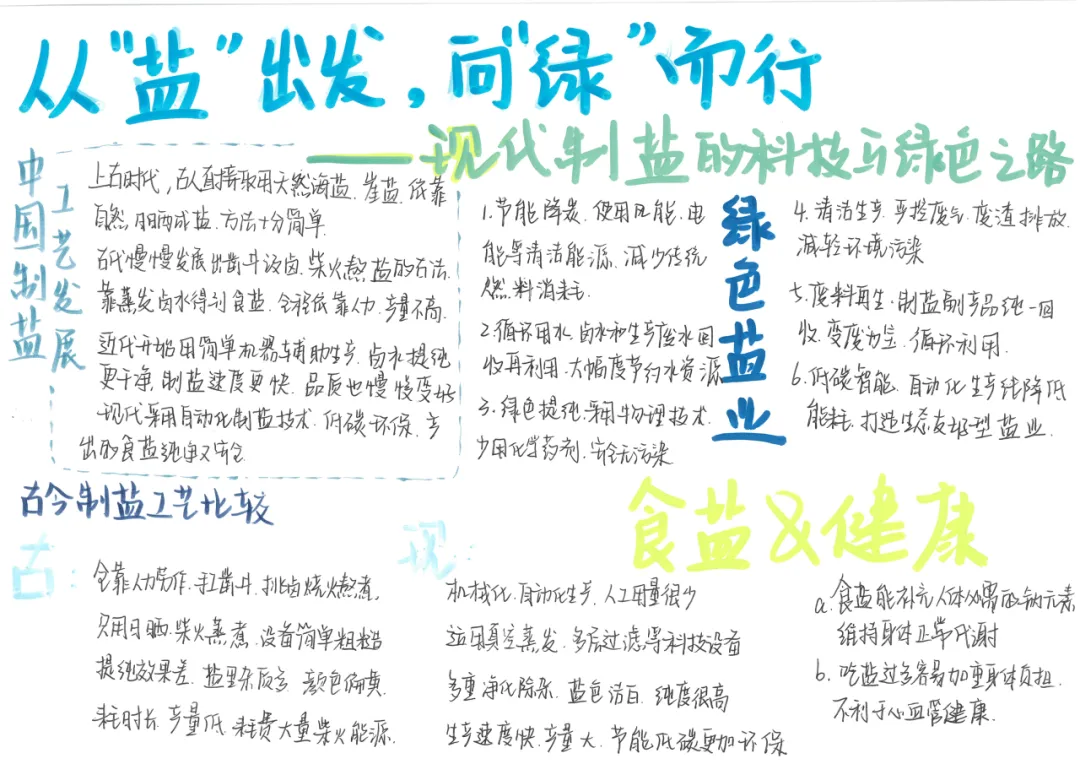 从“盐”出发，向“绿”而行
——现代制盐的科技与绿色之路
中国制盐
工艺发展
上古时代，古人直接取用天然海盐、崖盐，依靠
自然，日晒成盐，方法十分简单.
古代慢慢发展出凿井汲卤，柴火熬盐的方法.
靠蒸发卤水得到食盐，全程依靠人力，产量不高.
近代开始用简单机器辅助生产，卤水提纯
更干净，制盐速度更快，品质也慢慢变好
现代采用自动化制盐技术，低碳环保，产
出的食盐纯净又安全
绿色盐业
1.节能降碳，使用风能、电
能等清洁能源，减少传统
燃料消耗.
2.循环用水，卤水和生产废水回
收再利用，大幅度节约水资源
3.绿色提纯，采用物理技术，
少用化学药剂，安全无污染
4.清洁生产，严控废气、废渣排放.
减轻环境污染
5.废料再生，制盐副产品统一回
收，变废为宝，循环利用.
6.低碳智能，自动化生产线降低
能耗，打造生态友好型盐业.
古今制盐工艺比较
古：
全靠人力劳作，手工凿井，挑卤烧火熬煮.
只用日晒，柴火蒸煮，设备简单粗糙
提纯效果差，盐里杂质多，颜色偏黄.
耗时长，产量低，耗费大量柴火能源.
现：
机械化、自动化生产，人工用量很少
运用真空蒸发、多层过滤等科技设备
多重净化除杂，盐色洁白，纯度很高
生产速度快，产量大，节能低碳更加环保
食盐&健康
a.食盐能补充人体必需的钠元素
维持身体正常代谢
b.吃盐过多容易加重身体负担.
不利于心血管健康.